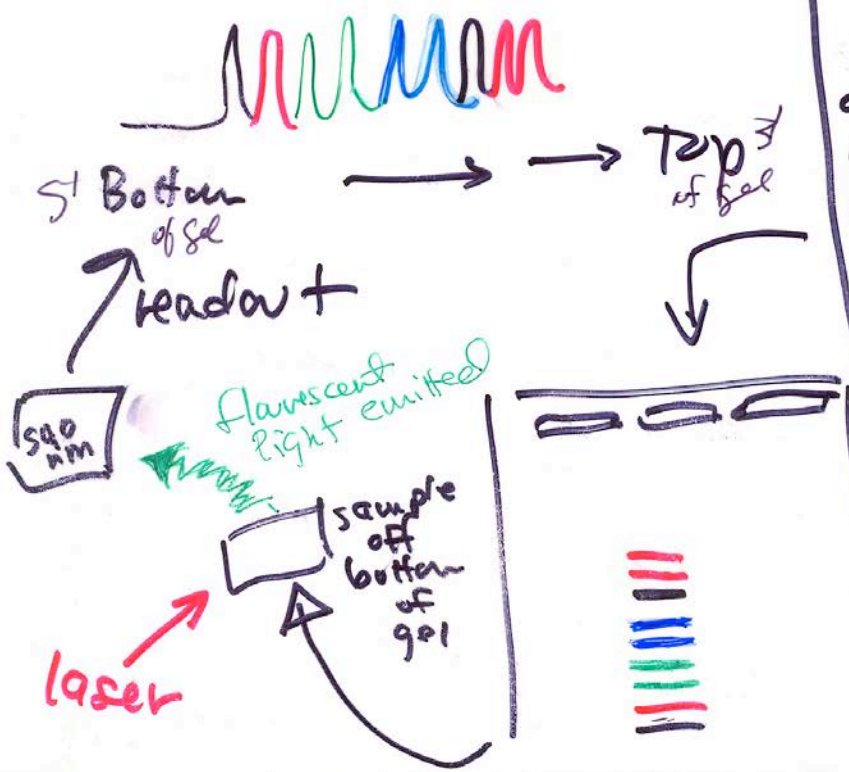 5' Bottom
of gel
Top 3'
of gel
readout
fluorescent
light emitted
540
nm
sample
off
bottom
of
gel
laser